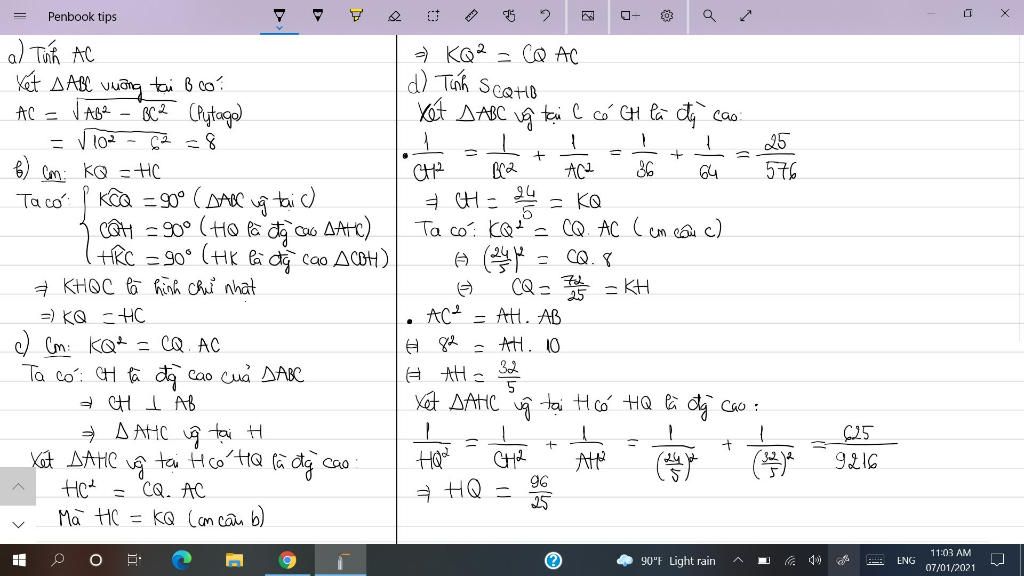 Penbook tips
a) Tính AC
Xét △ABC vuông tại B có:
AC = √(AB² − BC²) (Pytago)
= √(10² − 6²) = 8
b) Cm: KQ = HC
Ta có: { KĈQ = 90° (△ABC vg tại C)
CQ̂H = 90° (HQ là đg cao △AHC)
HK̂C = 90° (HK là đg cao △CBH)
⇒ KHQC là hình chữ nhật
⇒ KQ = HC
c) Cm: KQ² = CQ. AC
Ta có: CH là đg cao của △ABC
⇒ CH ⊥ AB
⇒ △AHC vg tại H
Xét △AHC vg tại H có HQ là đg cao:
HC² = CQ. AC
Mà HC = KQ (cm câu b)
⇒ KQ² = CQ AC
d) Tính S_CQHB
Xét △ABC vg tại C có CH là đg cao:
• 1/CH² = 1/BC² + 1/AC² = 1/36 + 1/64 = 25/576
⇒ CH = 24/5 = KQ
Ta có: KQ² = CQ. AC (cm câu c)
⇔ (24/5)² = CQ. 8
⇔ CQ = 72/25 = KH
• AC² = AH. AB
⇔ 8² = AH. 10
⇔ AH = 32/5
Xét △AHC vg tại H có HQ là đg cao:
1/HQ² = 1/CH² + 1/AH² = 1/(24/5)² + 1/(32/5)² = 625/9216
⇒ HQ = 96/25
90°F Light rain
ENG
11:03 AM
07/01/2021